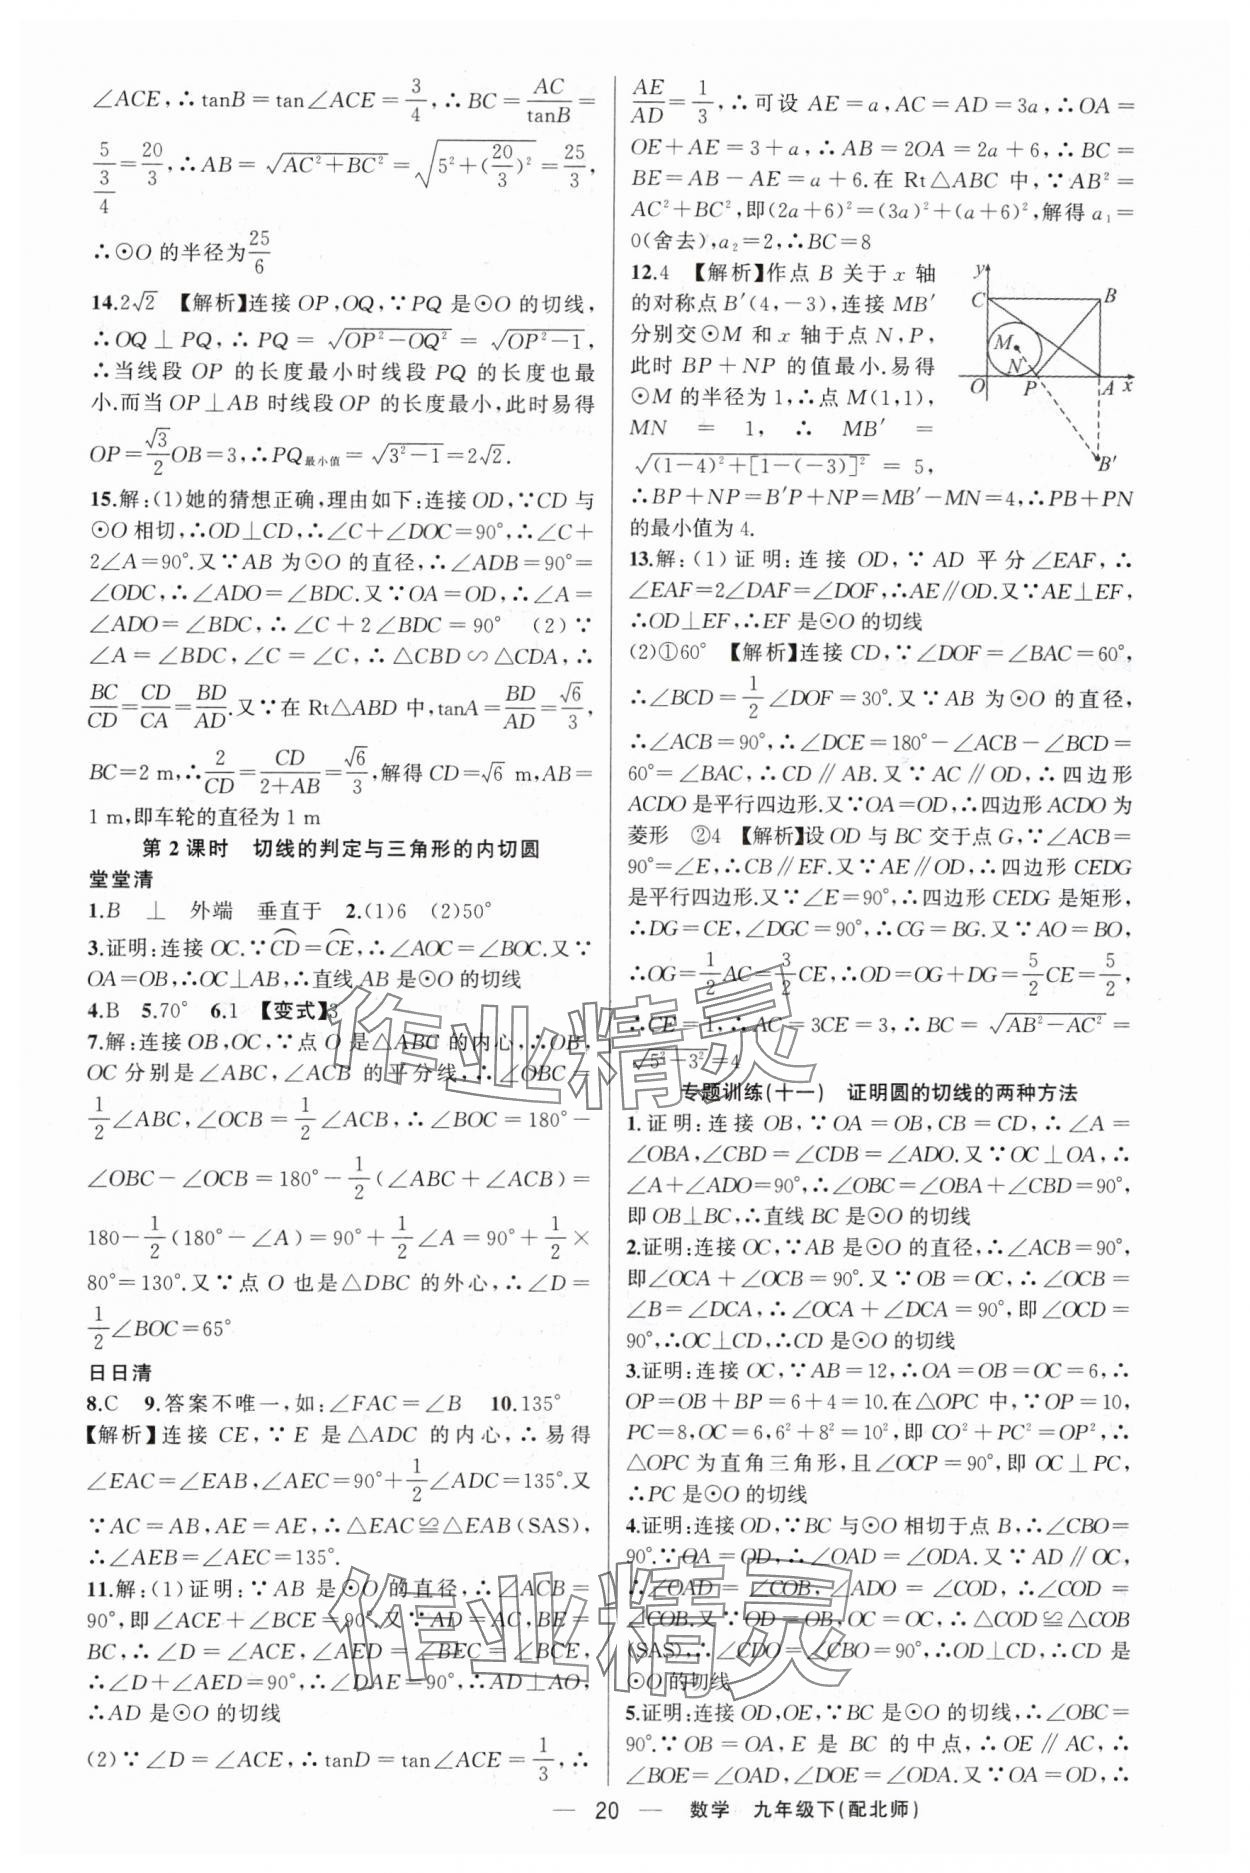 ∠ACE,∴tanB=tan∠ACE=3/4,∴BC=AC/tanB=
5/(3/4)=20/3,∴AB=√(AC²+BC²)=√(5²+(20/3)²)=25/3,
∴⊙O的半径为25/6
14.2√2 【解析】连接OP,OQ,∵PQ是⊙O的切线,
∴OQ⊥PQ,∴PQ=√(OP²−OQ²)=√(OP²−1),
∴当线段OP的长度最小时线段PQ的长度也最
小.而当OP⊥AB时线段OP的长度最小,此时易得
OP=√3/2OB=3,∴PQ最小值=√(3²−1)=2√2.
15.解:(1)她的猜想正确,理由如下:连接OD,∵CD与
⊙O相切,∴OD⊥CD,∴∠C+∠DOC=90°,∴∠C+
2∠A=90°.又∵AB为⊙O的直径,∴∠ADB=90°=
∠ODC,∴∠ADO=∠BDC.又∵OA=OD,∴∠A=
∠ADO=∠BDC,∴∠C+2∠BDC=90° (2)∵
∠A=∠BDC,∠C=∠C,∴△CBD∽△CDA,∴
BC/CD=CD/CA=BD/AD.又∵在Rt△ABD中,tanA=BD/AD=√6/3,
BC=2 m,∴2/CD=CD/(2+AB)=√6/3,解得CD=√6 m,AB=
1 m,即车轮的直径为1 m
第2课时 切线的判定与三角形的内切圆
堂堂清
1.B ⊥ 外端 垂直于 2.(1)6 (2)50°
3.证明:连接OC.∵⌒CD=⌒CE,∴∠AOC=∠BOC.又∵
OA=OB,∴OC⊥AB,∴直线AB是⊙O的切线
4.B 5.70° 6.1 【变式】3
7.解:连接OB,OC,∵点O是△ABC的内心,∴OB,
OC分别是∠ABC,∠ACB的平分线,∴∠OBC=
1/2∠ABC,∠OCB=1/2∠ACB,∴∠BOC=180°−
∠OBC−∠OCB=180°−1/2(∠ABC+∠ACB)=
180−1/2(180°−∠A)=90°+1/2∠A=90°+1/2×
80°=130°.又∵点O也是△DBC的外心,∴∠D=
1/2∠BOC=65°
日日清
8.C 9.答案不唯一,如:∠FAC=∠B 10.135°
【解析】连接CE,∵E是△ADC的内心,∴易得
∠EAC=∠EAB,∠AEC=90°+1/2∠ADC=135°.又
∵AC=AB,AE=AE,∴△EAC≌△EAB(SAS),
∴∠AEB=∠AEC=135°.
11.解:(1)证明:∵AB是⊙O的直径,∴∠ACB=
90°,即∠ACE+∠BCE=90°.又∵AD=AC,BE=
BC,∴∠D=∠ACE,∠AED=∠BEC=∠BCE,
∴∠D+∠AED=90°,∴∠DAE=90°,∴AD⊥AO,
∴AD是⊙O的切线
(2)∵∠D=∠ACE,∴tanD=tan∠ACE=1/3,∴
AE/AD=1/3,∴可设AE=a,AC=AD=3a,∴OA=
OE+AE=3+a,∴AB=2OA=2a+6,∴BC=
BE=AB−AE=a+6.在Rt△ABC中,∵AB²=
AC²+BC²,即(2a+6)²=(3a)²+(a+6)²,解得a₁=
0(舍去),a₂=2,∴BC=8
12.4 【解析】作点B关于x轴
的对称点B′(4,−3),连接MB′
分别交⊙M和x轴于点N,P,
此时BP+NP的值最小.易得
⊙M的半径为1,∴点M(1,1),
MN=1,∴MB′=
√((1−4)²+[1−(−3)]²)=5,
y
C
B
M
N
O
P
A
x
B′
∴BP+NP=B′P+NP=MB′−MN=4,∴PB+PN
的最小值为4.
13.解:(1)证明:连接OD,∵AD平分∠EAF,∴
∠EAF=2∠DAF=∠DOF,∴AE∥OD.又∵AE⊥EF,
∴OD⊥EF,∴EF是⊙O的切线
(2)①60° 【解析】连接CD,∵∠DOF=∠BAC=60°,
∴∠BCD=1/2∠DOF=30°.又∵AB为⊙O的直径,
∴∠ACB=90°,∴∠DCE=180°−∠ACB−∠BCD=
60°=∠BAC,∴CD∥AB.又∵AC∥OD,∴四边形
ACDO是平行四边形.又∵OA=OD,∴四边形ACDO为
菱形 ②4 【解析】设OD与BC交于点G,∵∠ACB=
90°=∠E,∴CB∥EF.又∵AE∥OD,∴四边形CEDG
是平行四边形.又∵∠E=90°,∴四边形CEDG是矩形,
∴DG=CE,∠DGC=90°,∴CG=BG.又∵AO=BO,
∴OG=1/2AC=3/2CE,∴OD=OG+DG=5/2CE=5/2,
∴CE=1,∴AC=3CE=3,∴BC=√(AB²−AC²)=
√(5²−3²)=4
专题训练(十一) 证明圆的切线的两种方法
1.证明:连接OB,∵OA=OB,CB=CD,∴∠A=
∠OBA,∠CBD=∠CDB=∠ADO.又∵OC⊥OA,∴
∠A+∠ADO=90°,∴∠OBC=∠OBA+∠CBD=90°,
即OB⊥BC,∴直线BC是⊙O的切线
2.证明:连接OC,∵AB是⊙O的直径,∴∠ACB=90°,
即∠OCA+∠OCB=90°.又∵OB=OC,∴∠OCB=
∠B=∠DCA,∴∠OCA+∠DCA=90°,即∠OCD=
90°,∴OC⊥CD,∴CD是⊙O的切线
3.证明:连接OC,∵AB=12,∴OA=OB=OC=6,∴
OP=OB+BP=6+4=10.在△OPC中,∵OP=10,
PC=8,OC=6,6²+8²=10²,即CO²+PC²=OP²,∴
△OPC为直角三角形,且∠OCP=90°,即OC⊥PC,
∴PC是⊙O的切线
4.证明:连接OD,∵BC与⊙O相切于点B,∴∠CBO=
90°.∵OA=OD,∴∠OAD=∠ODA.又∵AD∥OC,
∴∠OAD=∠COB,∠ADO=∠COD,∴∠COD=
∠COB.又∵OD=OB,OC=OC,∴△COD≌△COB
(SAS),∴∠CDO=∠CBO=90°,∴OD⊥CD,∴CD是
⊙O的切线
5.证明:连接OD,OE,∵BC是⊙O的切线,∴∠OBC=
90°.∵OB=OA,E是BC的中点,∴OE∥AC,∴
∠BOE=∠OAD,∠DOE=∠ODA.又∵OA=OD,∴
— 20 — 数学 九年级下(配北师)
作业精灵
作业精灵